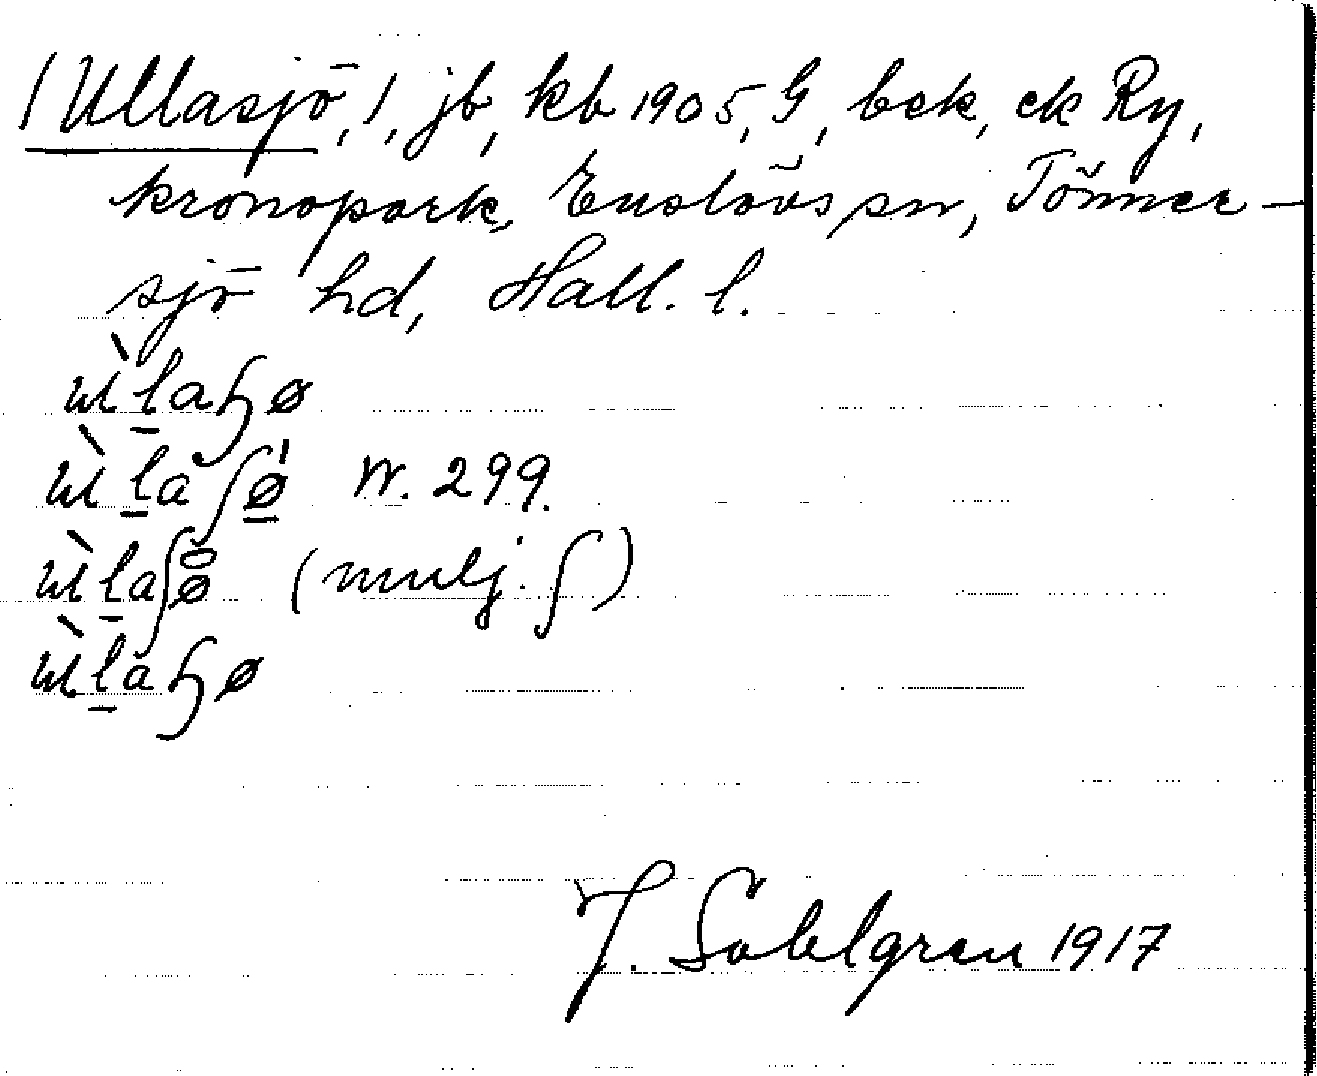 (Ullasjö, l, jb, kb 1905, G, bek, ek Ry,
kronopark, Enslövs sn, Tönner-
sjö hd, Hall. l.
ùḻaꞕø
ùḻaʃø̱ˈ W. 299.
ùḻaʃø̊ (mulj. ʃ)
ùḻaꞕø
J. Sahlgren 1917